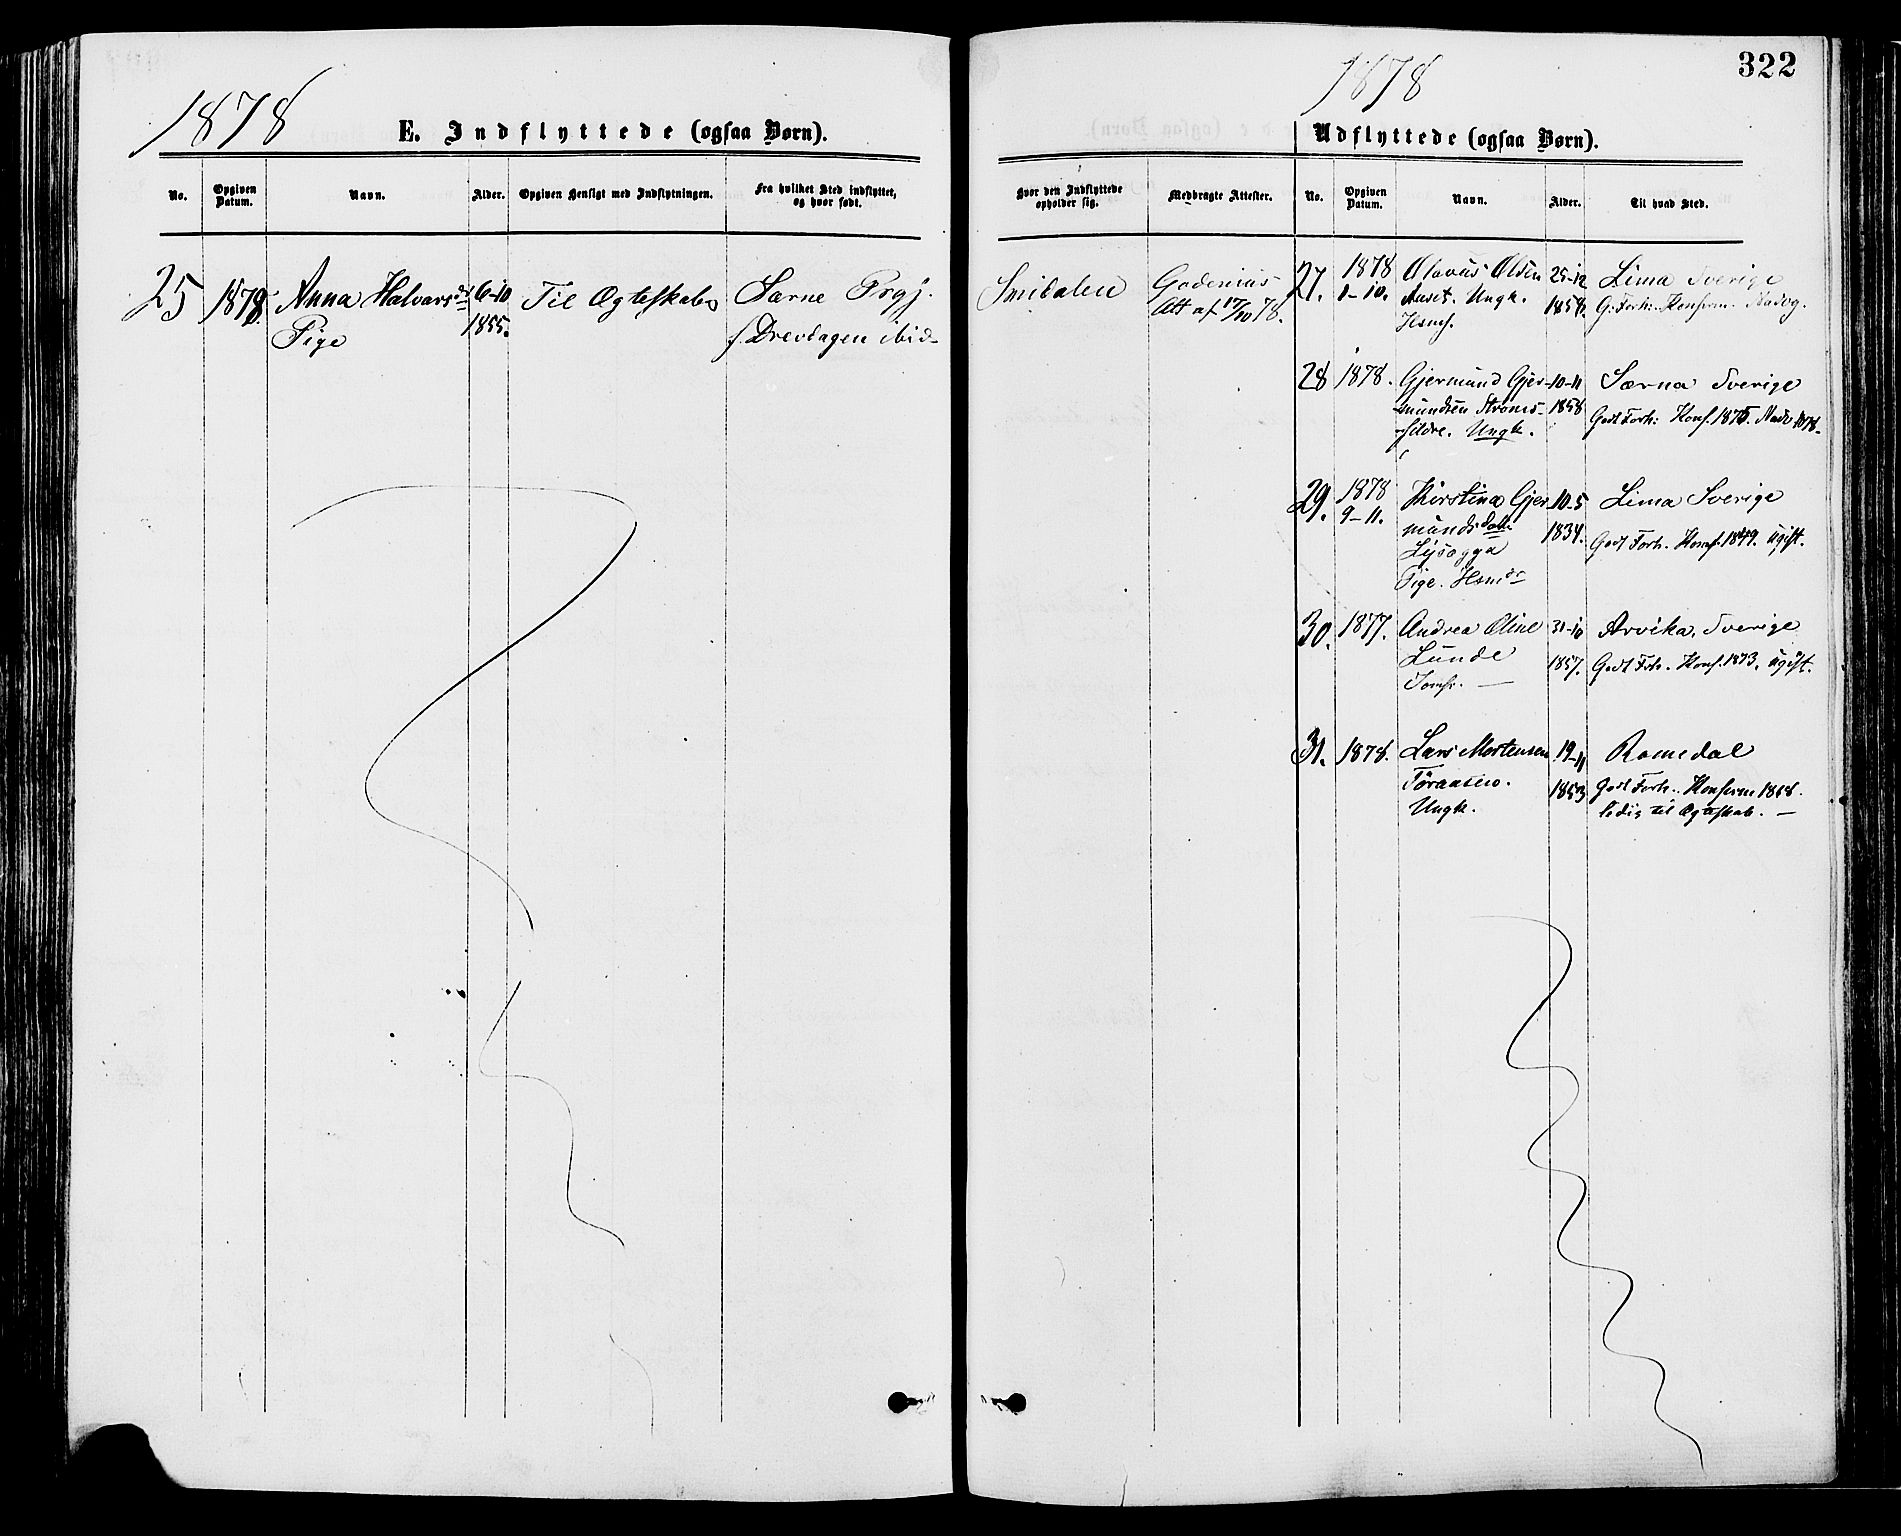 1878
E. Indflyttede (ogsaa Børn).
No.
Opgiven Datum.
Navn.
Alder.
Opgiven Hensigt med Indflytningen.
Fra hvilket Sted indflyttet, og hvor født.
25
1878.
Anna Halvarsdt
Pige
6-10
1855.
Til Ægteskab
Særne Prgj.
f. Drevdagen ibid-
322
1878
Udflyttede (ogsaa Børn).
Hvor den Indflyttede opholder sig.
Medbragte Attester.
No.
Opgiven Datum.
Navn.
Alder.
Til hvad Sted.
Smidalen
Att af 17/10 78.
27.
1878
1-10.
Olavus Olsen
Aaset. Ungk.
Hsmf.
25-12
1858.
Lima Sverige
G. Forh. Konfirm.
28
1878.
Gjermund Gjer-
mundsen Strøms-
Ungk.
10-11
1858
Særna Sverige
Godt Forh: Konf. 1875. Nadv 1878-
29.
1878
9-11.
Kirstine Gjer
mundsdatter
Lysøgga
Pige. Hsmdr
10-5
1834.
Lima Sverige
Godt Forh. Konf. 1849. ugift.
30.
1877.
Andrea Oline
Lunde
Jomfr. —
31-10
1857.
Arvika, Sverige
Godt Forh. Konf. 1873. ugift.
31.
1878.
Lars Mortensen
Ungk.
19-11
1853
Romedal
Godt Forh. Konfirm 1868.
ledig til Ægteskab. —